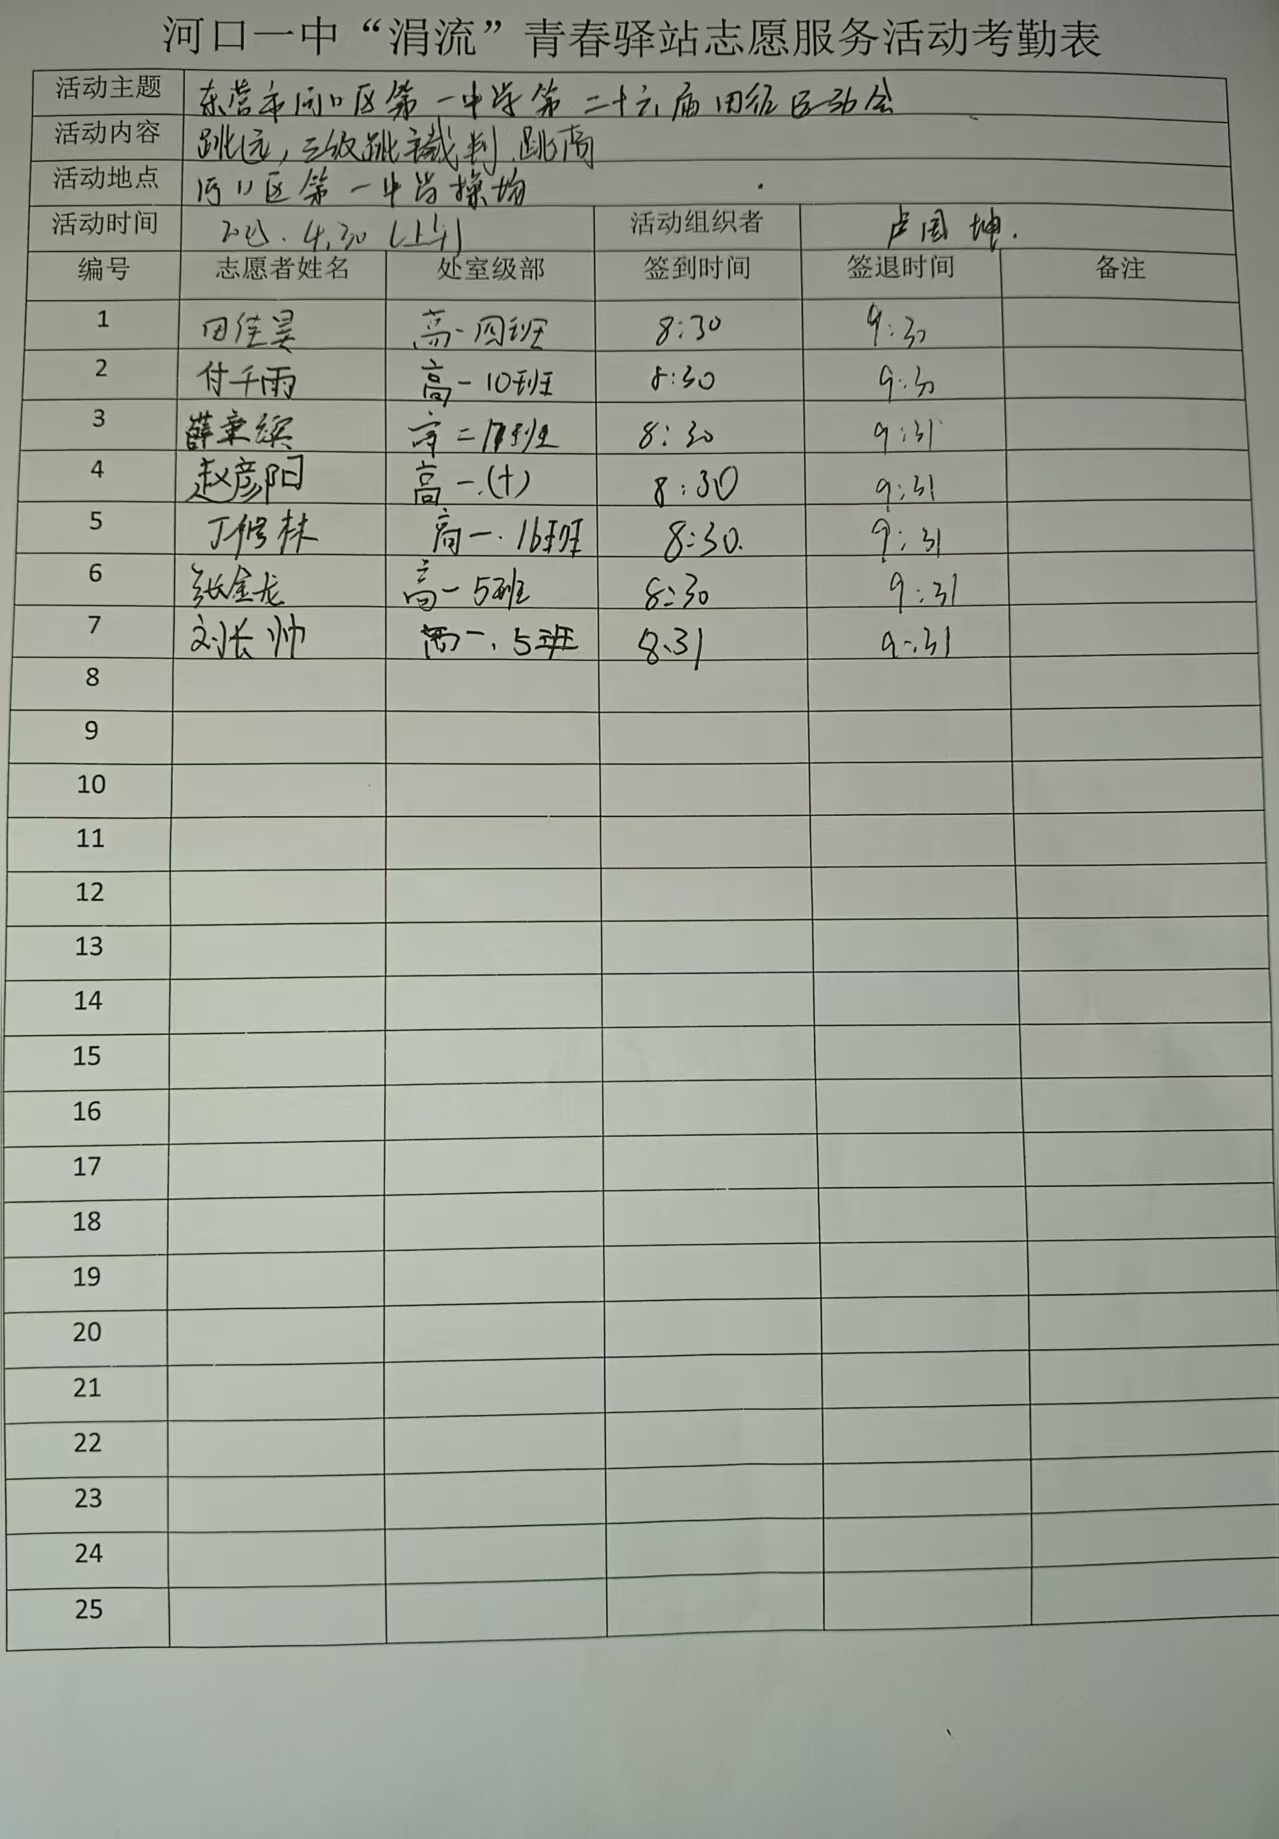 河口一中“涓流”青春驿站志愿服务活动考勤表
活动主题 东营市河口区第一中学第二十六届田径运动会
活动内容 跳远，三级跳主裁判 跳高
活动地点 河口区第一中学操场
活动时间 2025.4.30（上午） 活动组织者 卢国坤.
编号 志愿者姓名 处室级部 签到时间 签退时间 备注
1 田佳昊 高一四班 8:30 9:30
2 付千雨 高一10班 8:30 9:30
3 薛秉缤 高二17班 8:30 9:31
4 赵彦阳 高一.(十) 8:30 9:31
5 丁修林 高一.16班 8:30. 9:31
6 张金龙 高一5班 8:30 9:31
7 刘长帅 高一.5班 8.31 9:31
8
9
10
11
12
13
14
15
16
17
18
19
20
21
22
23
24
25